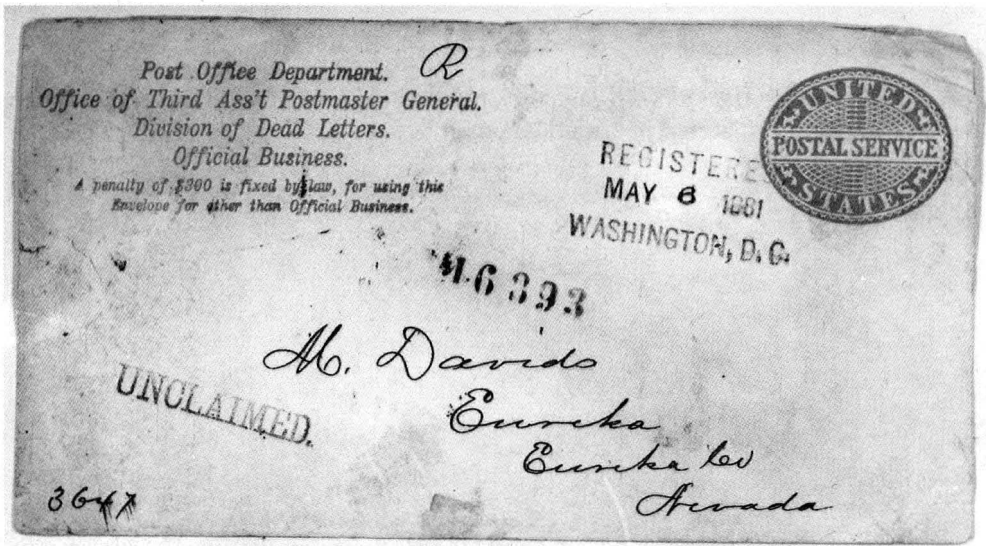 Post Office Department. R
Office of Third Ass't Postmaster General.
Division of Dead Letters.
Official Business.
A penalty of $300 is fixed by law, for using this
Envelope for other than Official Business.
UNITED
POSTAL SERVICE
STATES
REGISTERE
MAY 6 1881
WASHINGTON, D. C.
46393
M. Davids
Eureka
Eureka Co
Nevada
UNCLAIMED.
3647